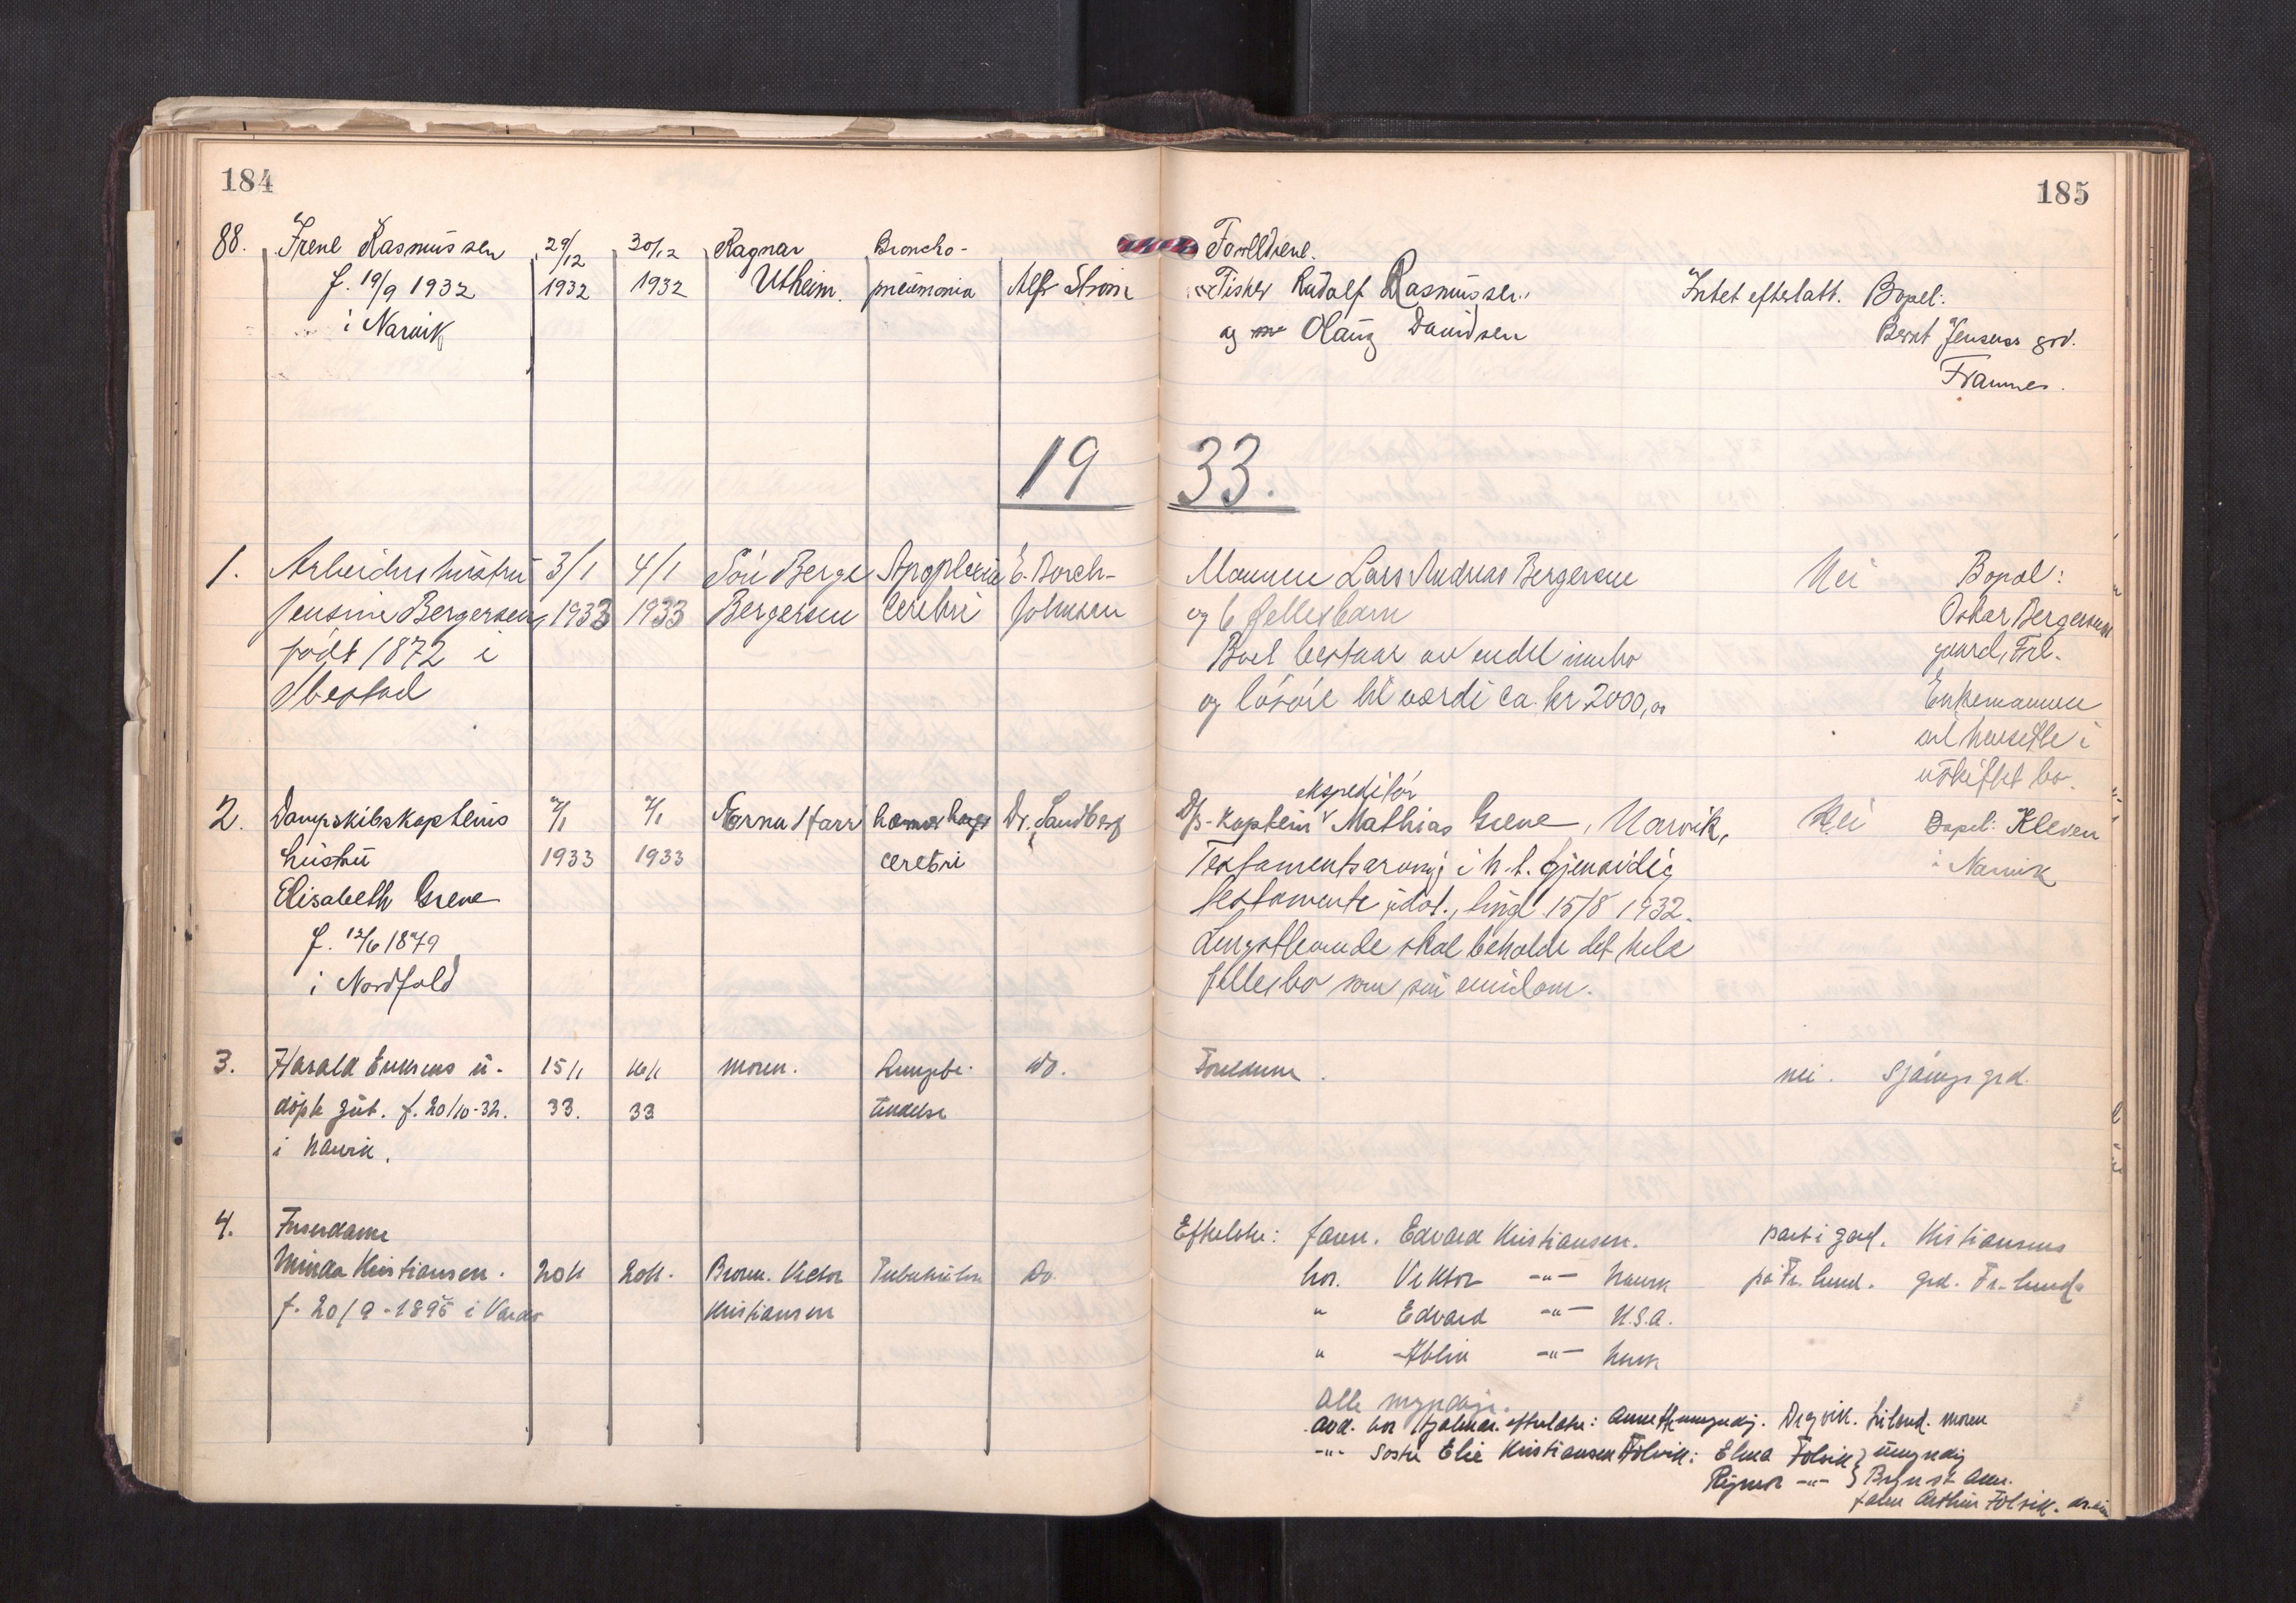 184
185
88. Irene Rasmussen 29/12 30/12 Ragnar Broncho- Foreldrene.
f. 19/9 1932 1932 1932 Utheim. pneumonia Alfr Strøm Fisker Rudolf Rasmussen Intet efterlatt. Bopel:
i Narvik og Olaug Davidsen Bernt Jensens grd.
Framnes.
19 33.
1. Arbeiderhustru 3/1 4/1 Berge Apoplexia E. Borch- Mannen Lars Andreas Bergersen Nei Bopæl:
Jensine Bergersen, 1933 1933 Bergersen cerebri Johnsen og 6 fellesbarn Oskar Bergersens
født 1872 i Boet bestaar av endel innbo gaard, Frl.
Ibestad og løsøre til værdi ca. kr 2000,00 Enkemannen
vil hensitte i
uskiftet bo.
2. Dampskibskapteins 7/1 7/1 Harr hæmorhagi Dr. Sandberg D/s-kaptein ekspeditør Mathias Greve, Narvik, Nei Bopel: Kleven
hustru 1933 1933 cerebri Testamentsarving i h.t. gjensidig i Narvik
Elisabeth Greve testamente dat., tingl. 15/8 1932.
f. 12/6 1879 Lengstlevende skal beholde det hele
i Nordfold fellesbo som sin eiendom.
3. Harald Eriksens u- 15/1 16/1 moren. Lungebe- do. Foreldrene. nei. Sjøungs grd.
døpte gut. f. 20/10-32. 33. 33 tendelse
i Narvik.
4. Friserdame Efterlatte: faren. Edvard Kristiansen. part i gard. Kristiansens
Minda Kristiansen. 20/1 20/1. Broren. Victor Tuberkulose Do bror. Viktor -"- Narvik på Fr.lund. grd. Fr.lund.
f. 20/9-1895 i Vardø Kristiansen " Edvard -"- U.S.A.
" -"- Narvik
Alle myndige.
avd. bror Hjalmar. efterlatte: Dregvik. moren
-"- Søster Elie Kristiansen Folvik: Elma Folvik } umyndig
-"- }
faren Arthur Folvik.